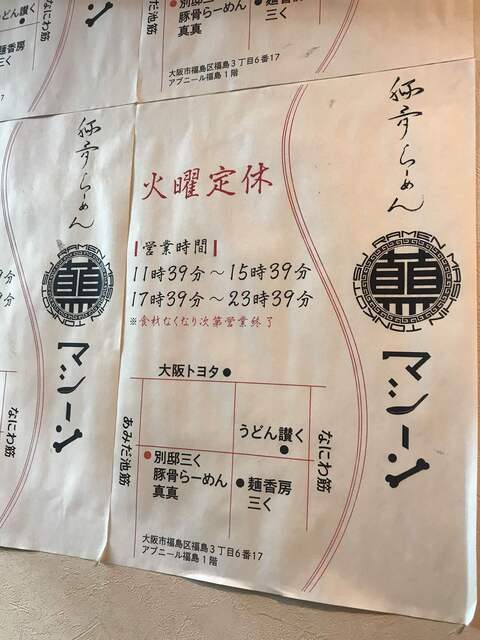 別邸三く
豚骨らーめん
真真
麺香房
三く
大阪市福島区福島3丁目6番17
アブニール福島1階
うどん讃く
麺香房
三く
火曜定休
営業時間
11時39分～15時39分
17時39分～23時39分
※食材なくなり次第営業終了
らーめん
TONKOTSU RAMEN MASHIN
マシーン
大阪トヨタ
うどん讃く
あみだ池筋
なにわ筋
別邸三く
豚骨らーめん
真真
麺香房
三く
大阪市福島区福島3丁目6番17
アブニール福島1階
らーめん
マシーン
なにわ筋